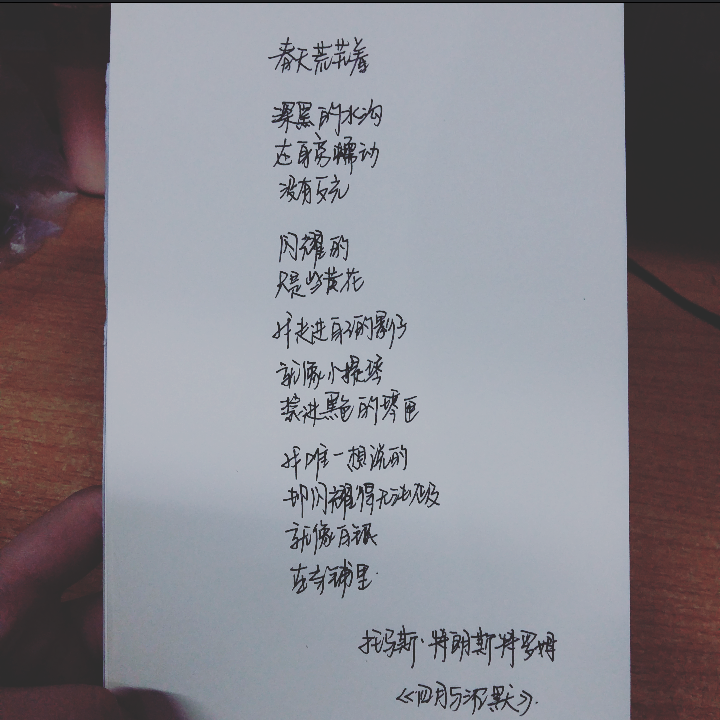 春天荒芜着
深黑的水沟
在身旁蠕动
没有反光
闪耀的
只是些黄花
我走进自己的影子
就像小提琴
装进黑色的琴匣
我唯一想说的
却闪耀得无法企及
就像白银
在当铺里.
托马斯·特朗斯特罗姆
《四月与沉默》.